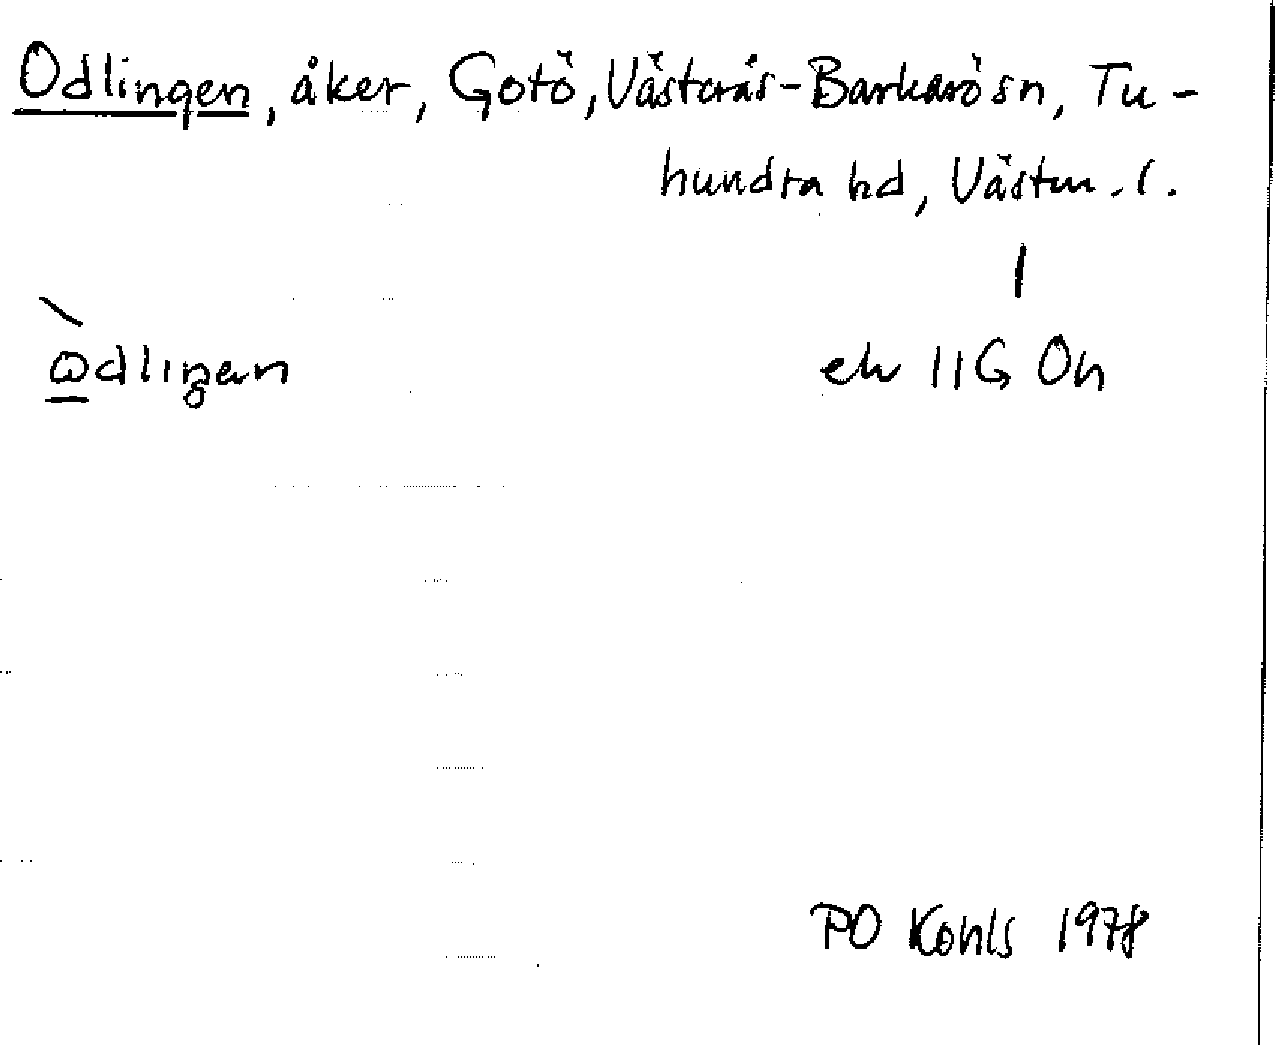 Odlingen, åker, Gotö, Västerås-Barkarö sn, Tu-
hundra hd, Västm. l.
òdlıŋan
ek 11G Öh
PO Kohls 1978